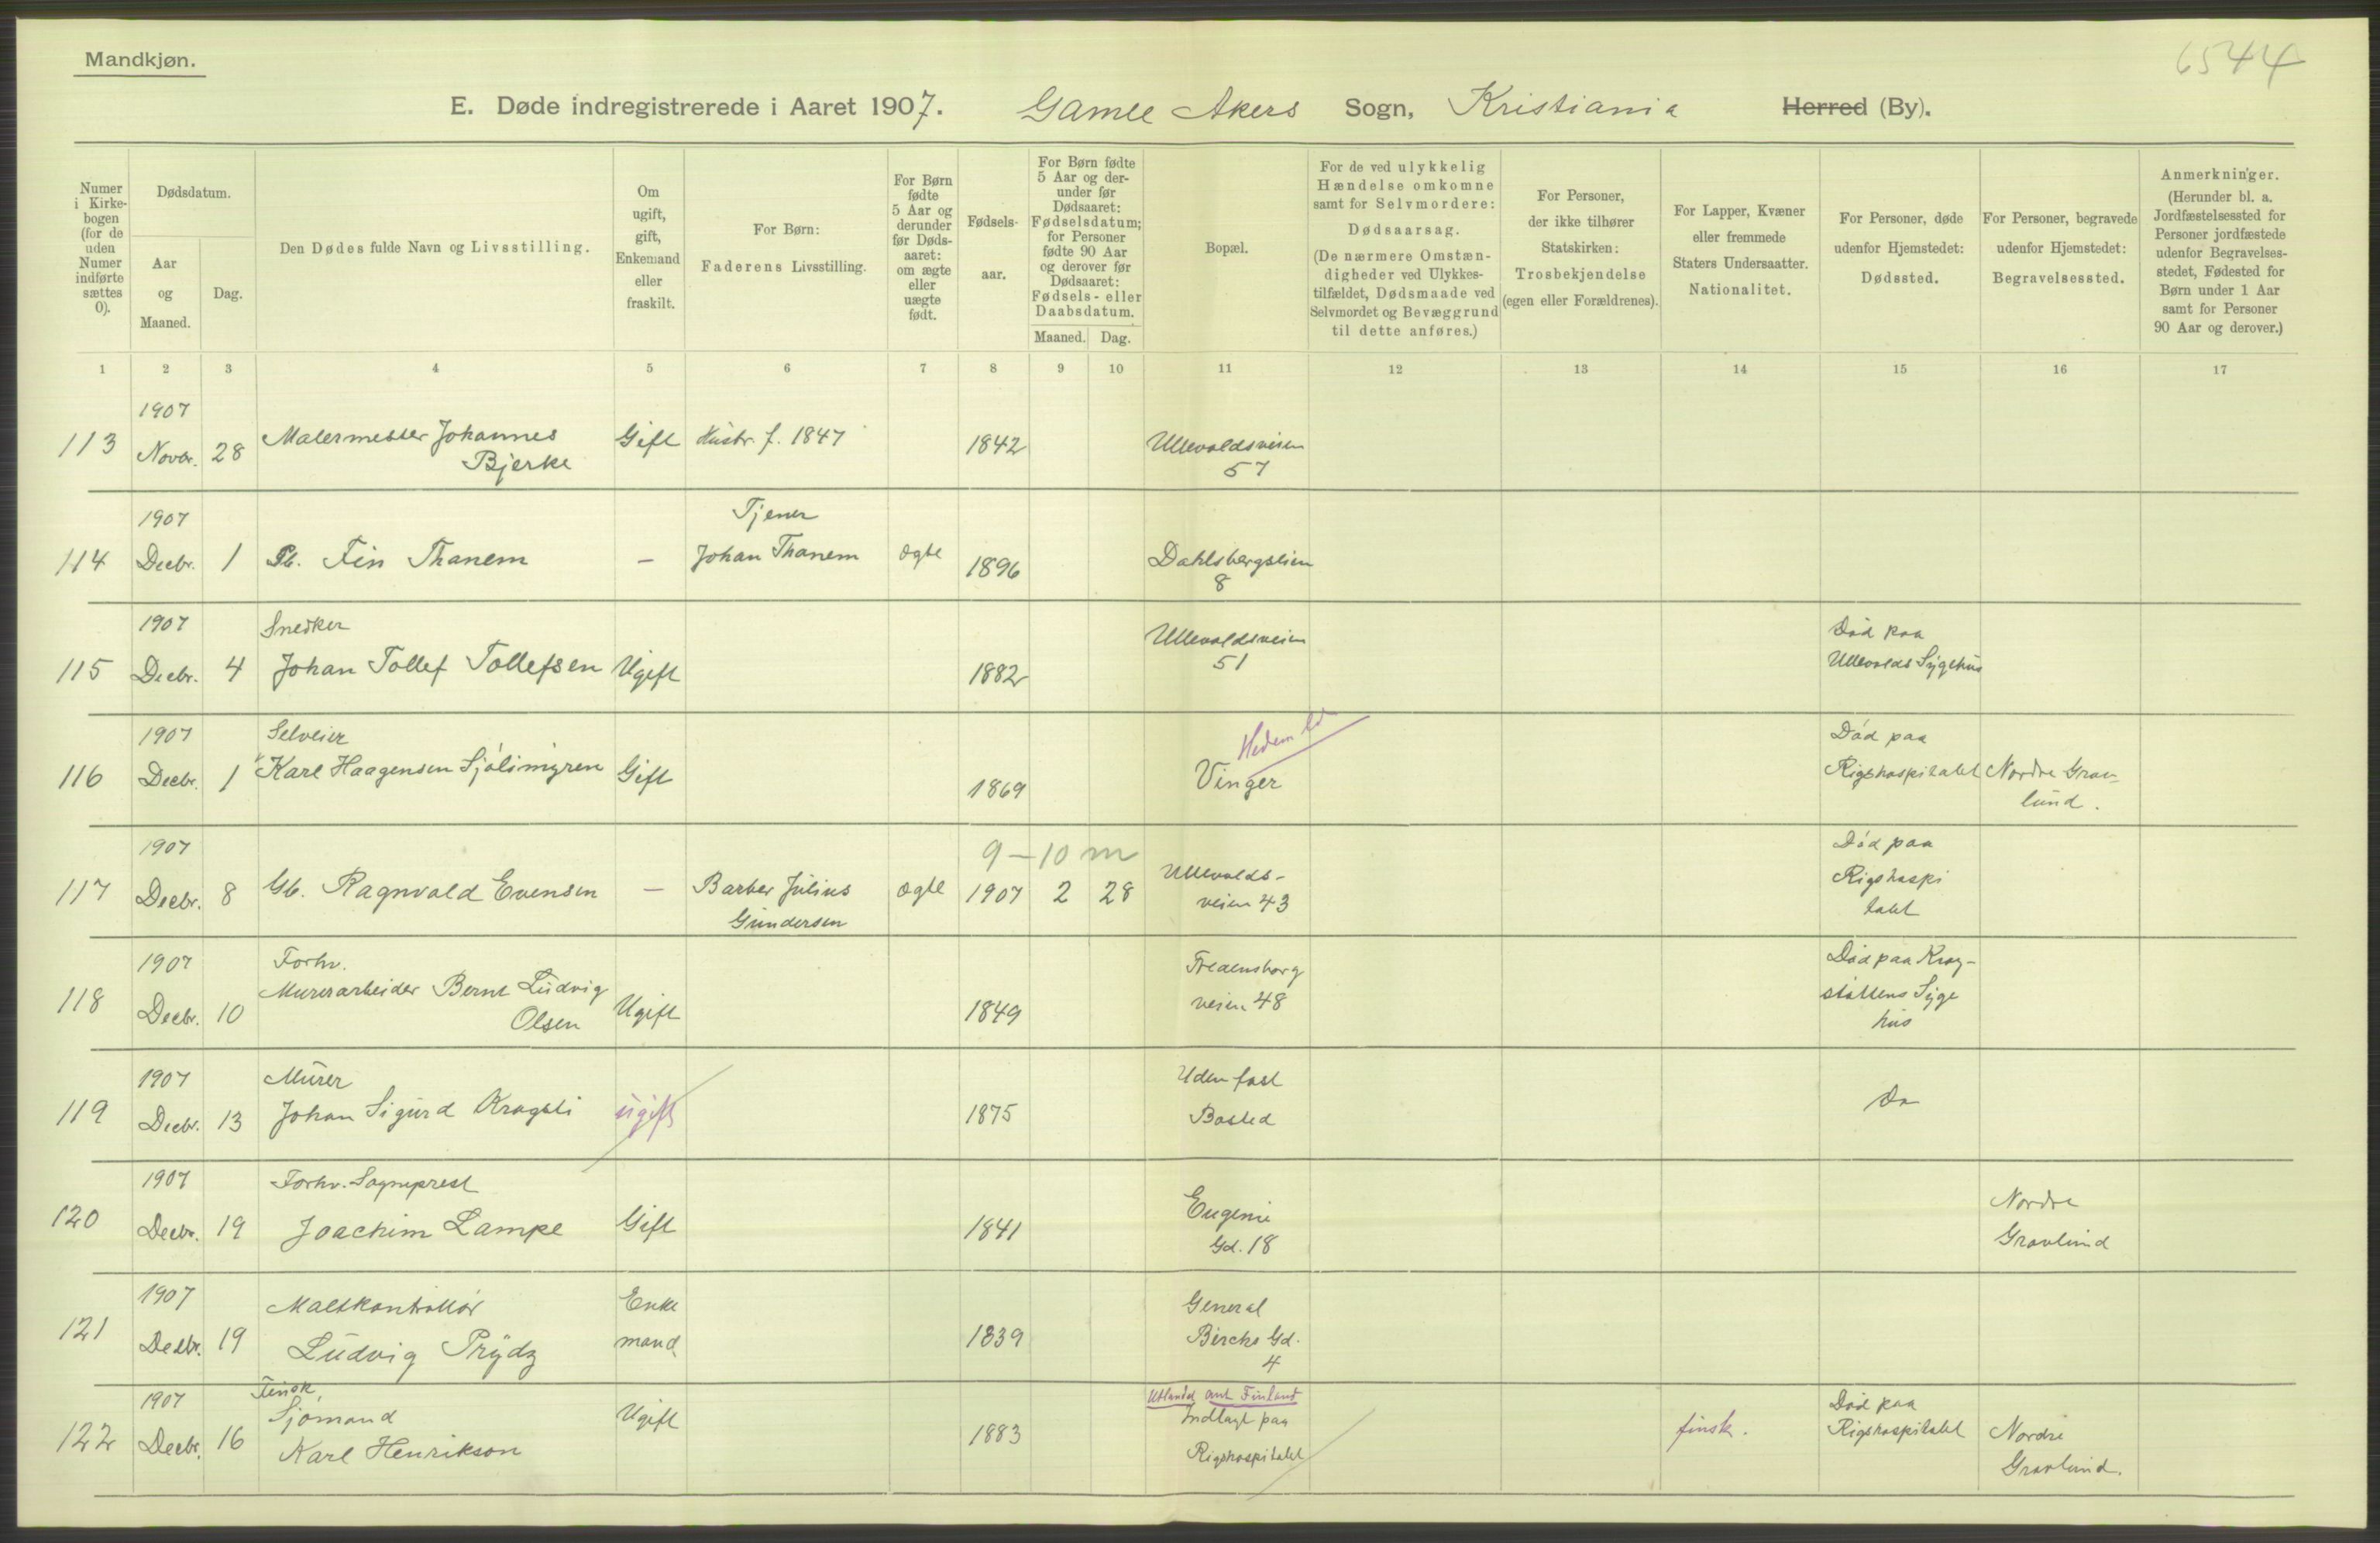 Mandkjøn.
6544
E. Døde indregistrerede i Aaret 1907. Gamle Akers Sogn, Kristiania Herred (By).
Numer i Kirkebogen (for de uden Numer indførte sættes 0).
Dødsdatum.
Aar og Maaned.
Dag.
Den Dødes fulde Navn og Livsstilling.
Om ugift, gift, Enkemand eller fraskilt.
For Børn: Faderens Livsstilling.
For Børn fødte 5 Aar og derunder før Dødsaaret: om ægte eller uægte født.
Fødselsaar.
For Børn fødte 5 Aar og derunder før Dødsaaret: Fødselsdatum; for Personer fødte 90 Aar og derover før Dødsaaret: Fødsels- eller Daabsdatum.
Maaned. Dag.
Bopæl.
For de ved ulykkelig Hændelse omkomne samt for Selvmordere: Dødsaarsag. (De nærmere Omstændigheder ved Ulykkestilfældet, Dødsmaade ved Selvmordet og Bevæggrund til dette anføres.)
For Personer, der ikke tilhører Statskirken: Trosbekjendelse (egen eller Forældrenes).
For Lapper, Kvæner eller fremmede Staters Undersaatter. Nationalitet.
For Personer, døde udenfor Hjemstedet: Dødssted.
For Personer, begravede udenfor Hjemstedet: Begravelsessted.
Anmerkninger. (Herunder bl. a. Jordfæstelsessted for Personer jordfæstede udenfor Begravelsesstedet, Fødested for Børn under 1 Aar samt for Personer 90 Aar og derover.)
1 2 3 4 5 6 7 8 9 10 11 12 13 14 15 16 17
1907
113 Novbr. 28 Malermester Johannes Bjerke Gift Hustr. f. 1847 1842 Ullevoldsveien 57
1907 Tjener
114 Decbr. 1 Fin Thanem — Johan Thanem ægte 1896 Dahlsbergstien 8
1907 Snedker
115 Decbr. 4 Johan Tollef Tollefsen Ugift 1882 Ullevoldsveien 51 Død paa Ullevolds Sygehus
1907 Selveier Hedem
116 Decbr. 1 Karl Haagensen Sjølimyren Gift 1869 Vinger Død paa Rigshospitalet Nordre Gravlund.
1907 9-10 m
117 Decbr. 8 Gb. Ragnvald Evensen — Barber Julius Gundersen ægte 1907 2 28 Ullevoldsveien 43 Død paa Rigshospitalet
1907 Forhv.
118 Decbr. 10 Murerarbeider Bernt Ludvig Olsen Ugift 1849 Fredensborgveien 48 Død paa Krogstøttens Sygehus
1907 Murer
119 Decbr. 13 Johan Sigurd Kragsti ugift 1875 Uden fast Bosted Do
1907 Forhv. Sogneprest
120 Decbr. 19 Joachim Lampe Gift 1841 Eugenie Gd. 18 Nordre Gravlund
1907 Maltkontrollør
121 Decbr. 19 Ludvig Prydz Enkemand 1839 General Birchs Gd. 4
1907 Finsk Sjømand Utlandet ant Finland
122 Decbr. 16 Karl Henrikson Ugift 1883 Indlagt paa Rigshospitalet finsk. Død paa Rigshospitalet Nordre Gravlund.